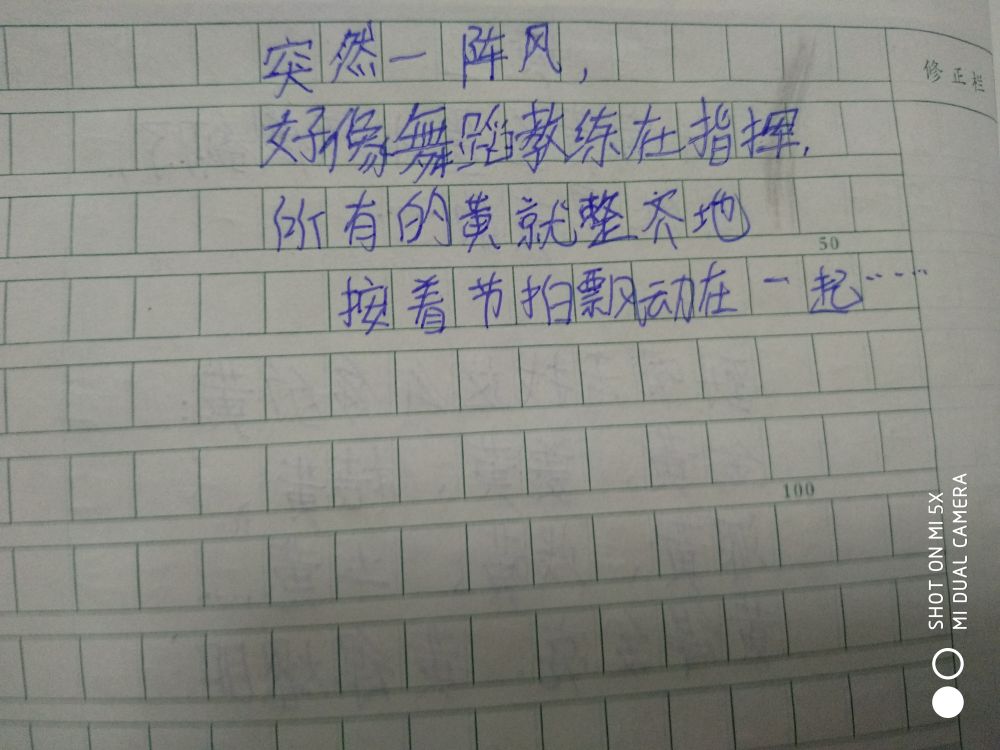 突然一阵风，
修正栏
好像舞蹈教练在指挥，
所有的黄就整齐地
50
按着节拍飘动在一起……
100
SHOT ON MI 5X
MI DUAL CAMERA